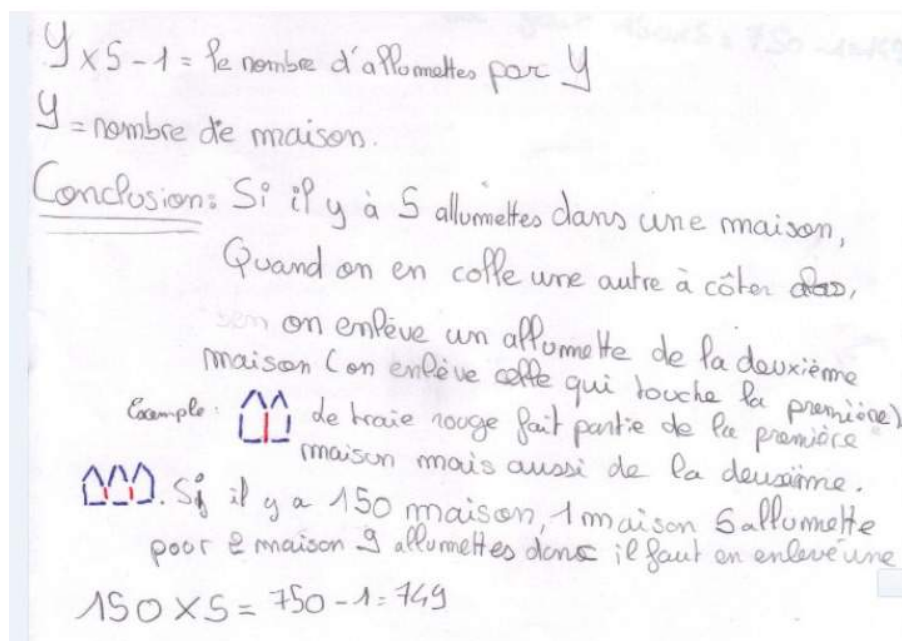 Y x 5 - 1 = le nombre d'allumettes par Y
Y = nombre de maison.
Conclusion: Si il y à 5 allumettes dans une maison,
Quand on en colle une autre à côter
on enlève un allumette de la deuxième
maison (on enlève celle qui touche la première)
Example: de traie rouge fait partie de la première
maison mais aussi de la deuxième.
. Si il y a 150 maison, 1 maison 5 allumette
pour 2 maison 9 allumettes donc il faut en enlevé une
150 x 5 = 750 - 1 = 749